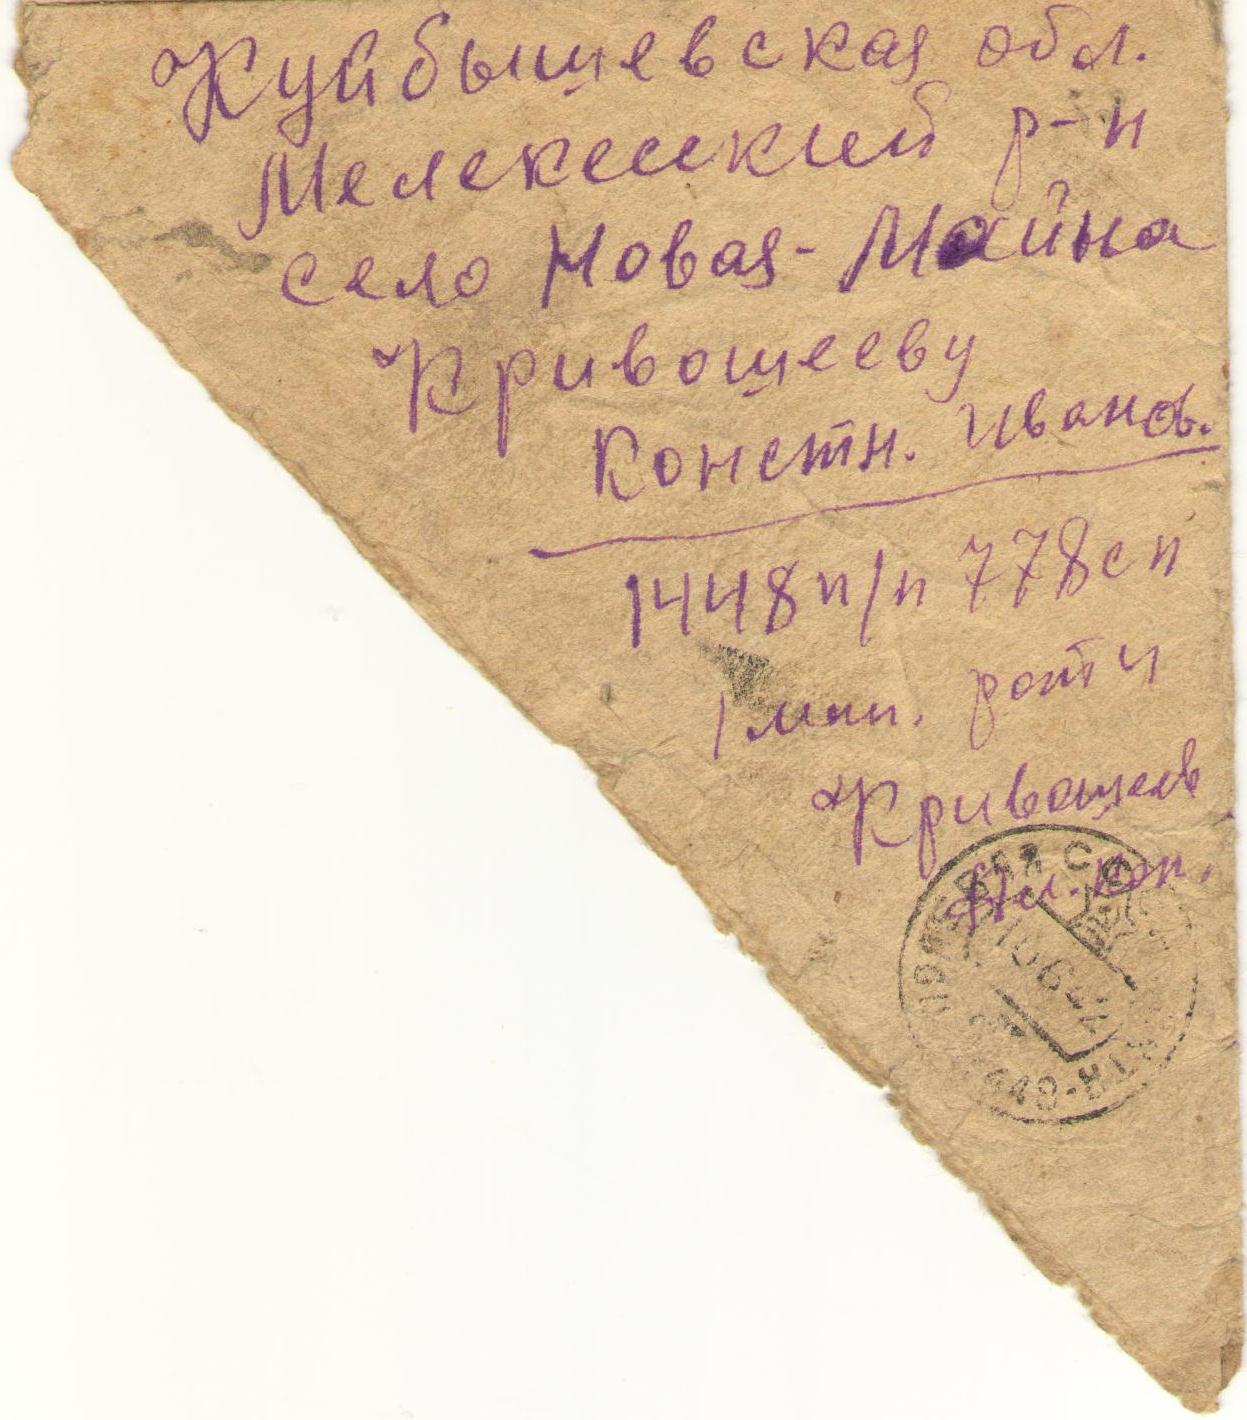 Куйбышевская обл.
Мелекесский р-н
село Новая-Майна
Кривошееву
Констн. Иванов.
1448 п/п 778 сп
1 мин. роты
Кривошеев